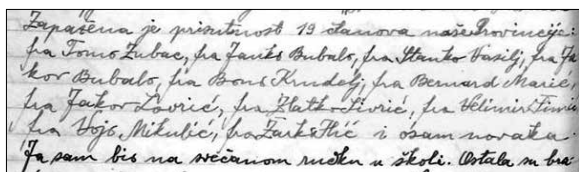 Zapažena je prisutnost 19 članova naše Provincije:
fra Tomo Zubac, fra Janko Bubalo, fra Stanko Vasilj, fra Ja
kov Bubalo, fra Bono Krndelj, fra Bernard Marić,
fra Jakov Lovrić, fra Zlatko Sivrić, fra Velimir
fra Vojo Mikulić, fra Žarko Ilić i osam novaka.
Ja sam bio na svečanom ručku u školi. Ostala su bra-